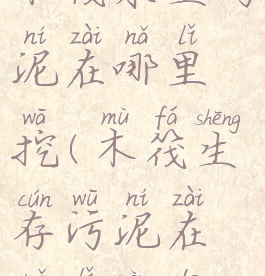 ní zài nǎ lǐ
泥在哪里
wā mù fá shēng
挖(木筏生
cún wū ní zài
存污泥在